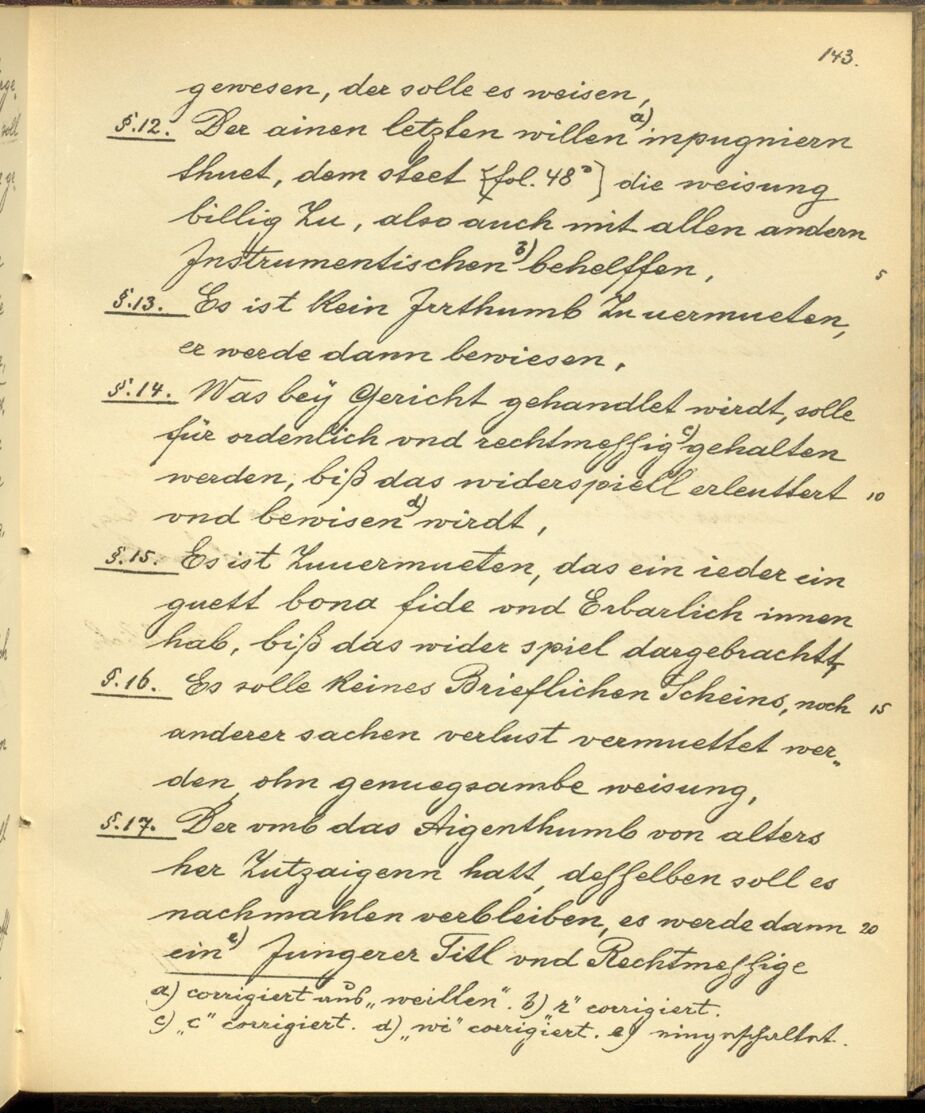 143.
gewesen, der solle es weisen,
§.12. Der ainen letzten willen a) inpugniern
thuet, dem steet [fol. 48 b] die weisung
billig Zu, also auch mit allen andern
Instrumentischen b) behelffen, 5
§.13. Es ist kein Jrrthumb Zu uermueten,
er werde dann bewiesen,
§.14. Was beÿ Gericht gehandlet wirdt, solle
für ordenlich vnd rechtmessig c) gehalten
werden, biß das widerspiell erleuttert 10
vnd bewisen d) wirdt,
§.15. Es ist Zuuermueten, das ein ieder ein
guett bona fide vnd Erbarlich innen
hab, biß das wider spiel dargebrachtt,
§.16. Es solle keines Brieflichen Scheins, noch 15
anderer sachen verlust vermuettet wer„
den, ohn genuegsambe weisung,
§.17. Der vmb das Aigenthumb von alters
her Zutzaigenn hatt, desselben soll es
nachmahlen verbleiben, es werde dann 20
ein e) Jungerer Titl vnd Rechtmessige
a) corrigiert aus „weillen". b) „r" corrigiert.
c) „c" corrigiert. d) „wi" corrigiert. e) eingeschaltet.